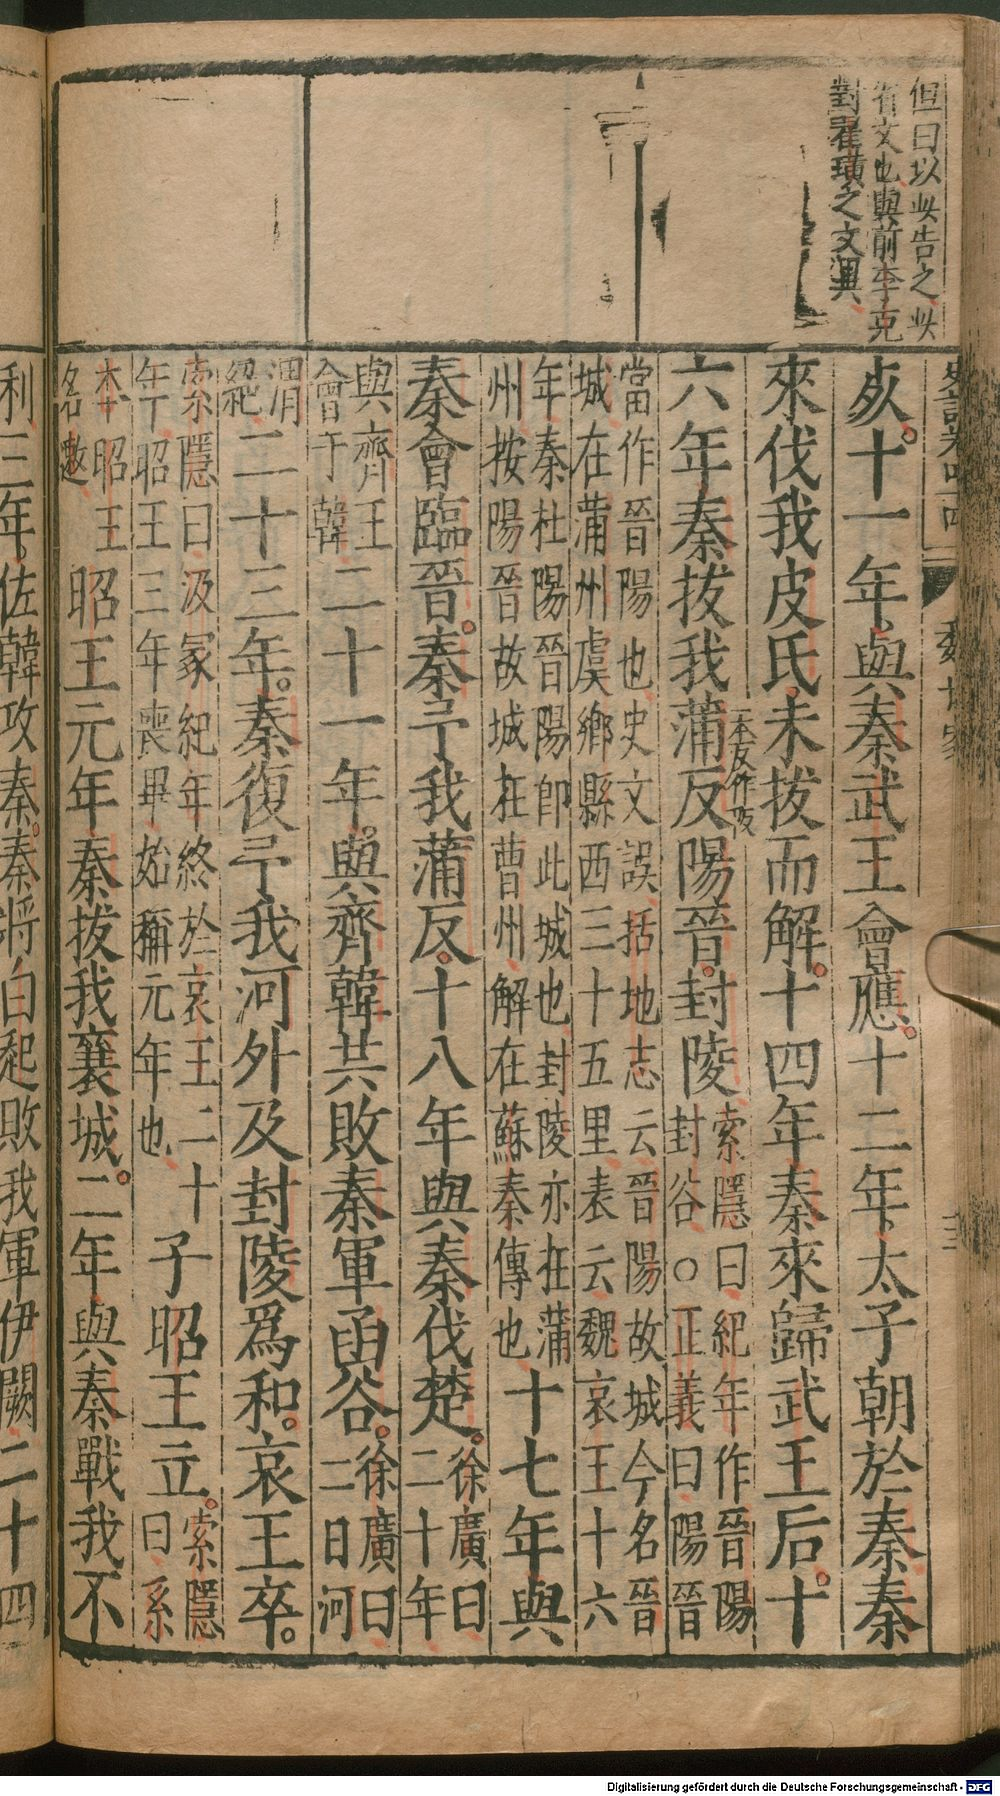 但曰以此告之此
省文也與前李克
對翟璜之文異
史記卷四十四
魏世家
十三
矣十一年與秦武王會應十二年太子朝於秦秦
來伐我皮氏未拔而解十四年秦來歸武王后十
一本反作阪
六年秦拔我蒲反陽晉封陵
索隱曰紀年作晉陽
封谷○正義曰陽晉
當作晉陽也史文誤括地志云晉陽故城今名晉
城在蒲州虞鄉縣西三十五里表云魏哀王十六
年秦杜陽晉陽即此城也封陵亦在蒲
州按陽晉故城在曹州解在蘇秦傳也
十七年與
秦會臨晉秦予我蒲反十八年與秦伐楚
徐廣曰
二十年
與齊王
會于韓
二十一年與齊韓共敗秦軍函谷
徐廣曰
二曰河
渭
絕
二十三年秦復予我河外及封陵爲和哀王卒
索隱曰汲冢紀年終於哀王二十
年丁昭王三年喪畢始稱元年也
子昭王立
索隱
曰系
本昭王
名遫
昭王元年秦拔我襄城二年與秦戰我不
利三年佐韓攻秦秦將白起敗我軍伊闕二十四
Digitalisierung gefördert durch die Deutsche Forschungsgemeinschaft - DFG